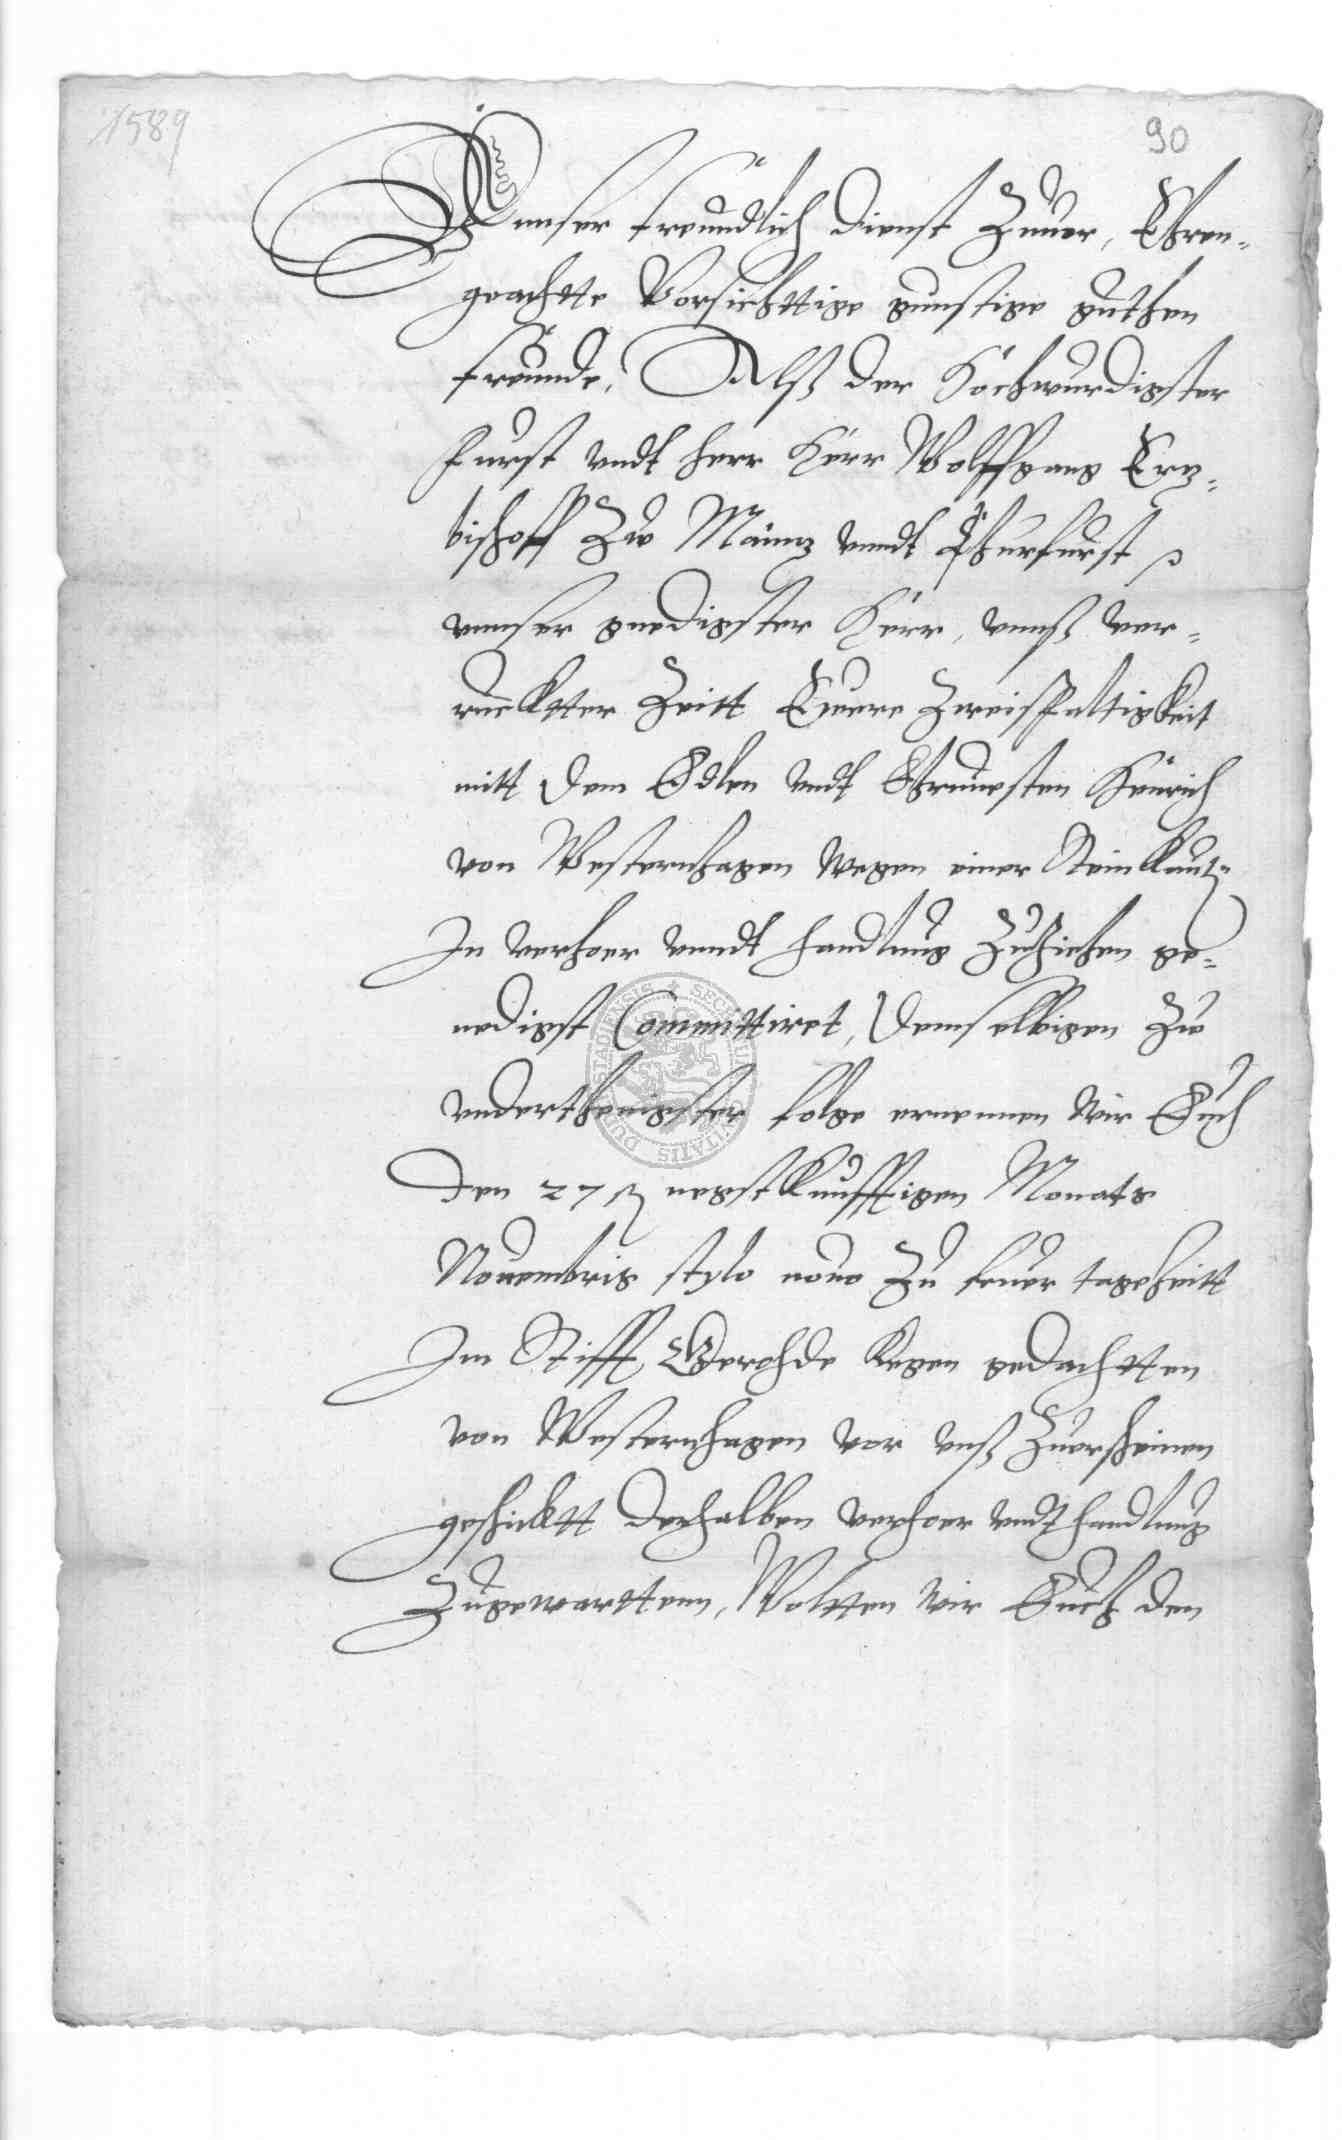 1589
90
Vnnser freundlich dienst Zuuor, Ehren-
geachtte Vorsichttige gunstige guthen
freunde, Alß der Hochwurdigster
Furst vndt herr Herr Wolffgang Ertz-
bischoff Zw Maintz vnndt Churfurst
vnnser gnedigster Herr, vnnß ver-
ruckter Zeitt Ewere Zweispaltigkeit
mitt dem Edlen vndt Ehrnuesten Heinrich
von Westernhagen wegen einer Steinkauten
In verhoer vnndt handlung Zuziehen ge-
nedigst Committiret, Demselbigen Zw
vnderthenigster folge ernennen wir Euch
den 27ten negstkunfftigen Monats
Nouembris stylo nouo Zu früer tageszeitt
Im Stifft Gerohde kegen gedachtten
von Westernhagen vor vnß Zuerscheinen
geschicktt derhalben verhoer vndt handlung
Zugewarttenn, Woltten wir Euch den
SECRETUM CIVITATIS DUDERSTADIENSIS